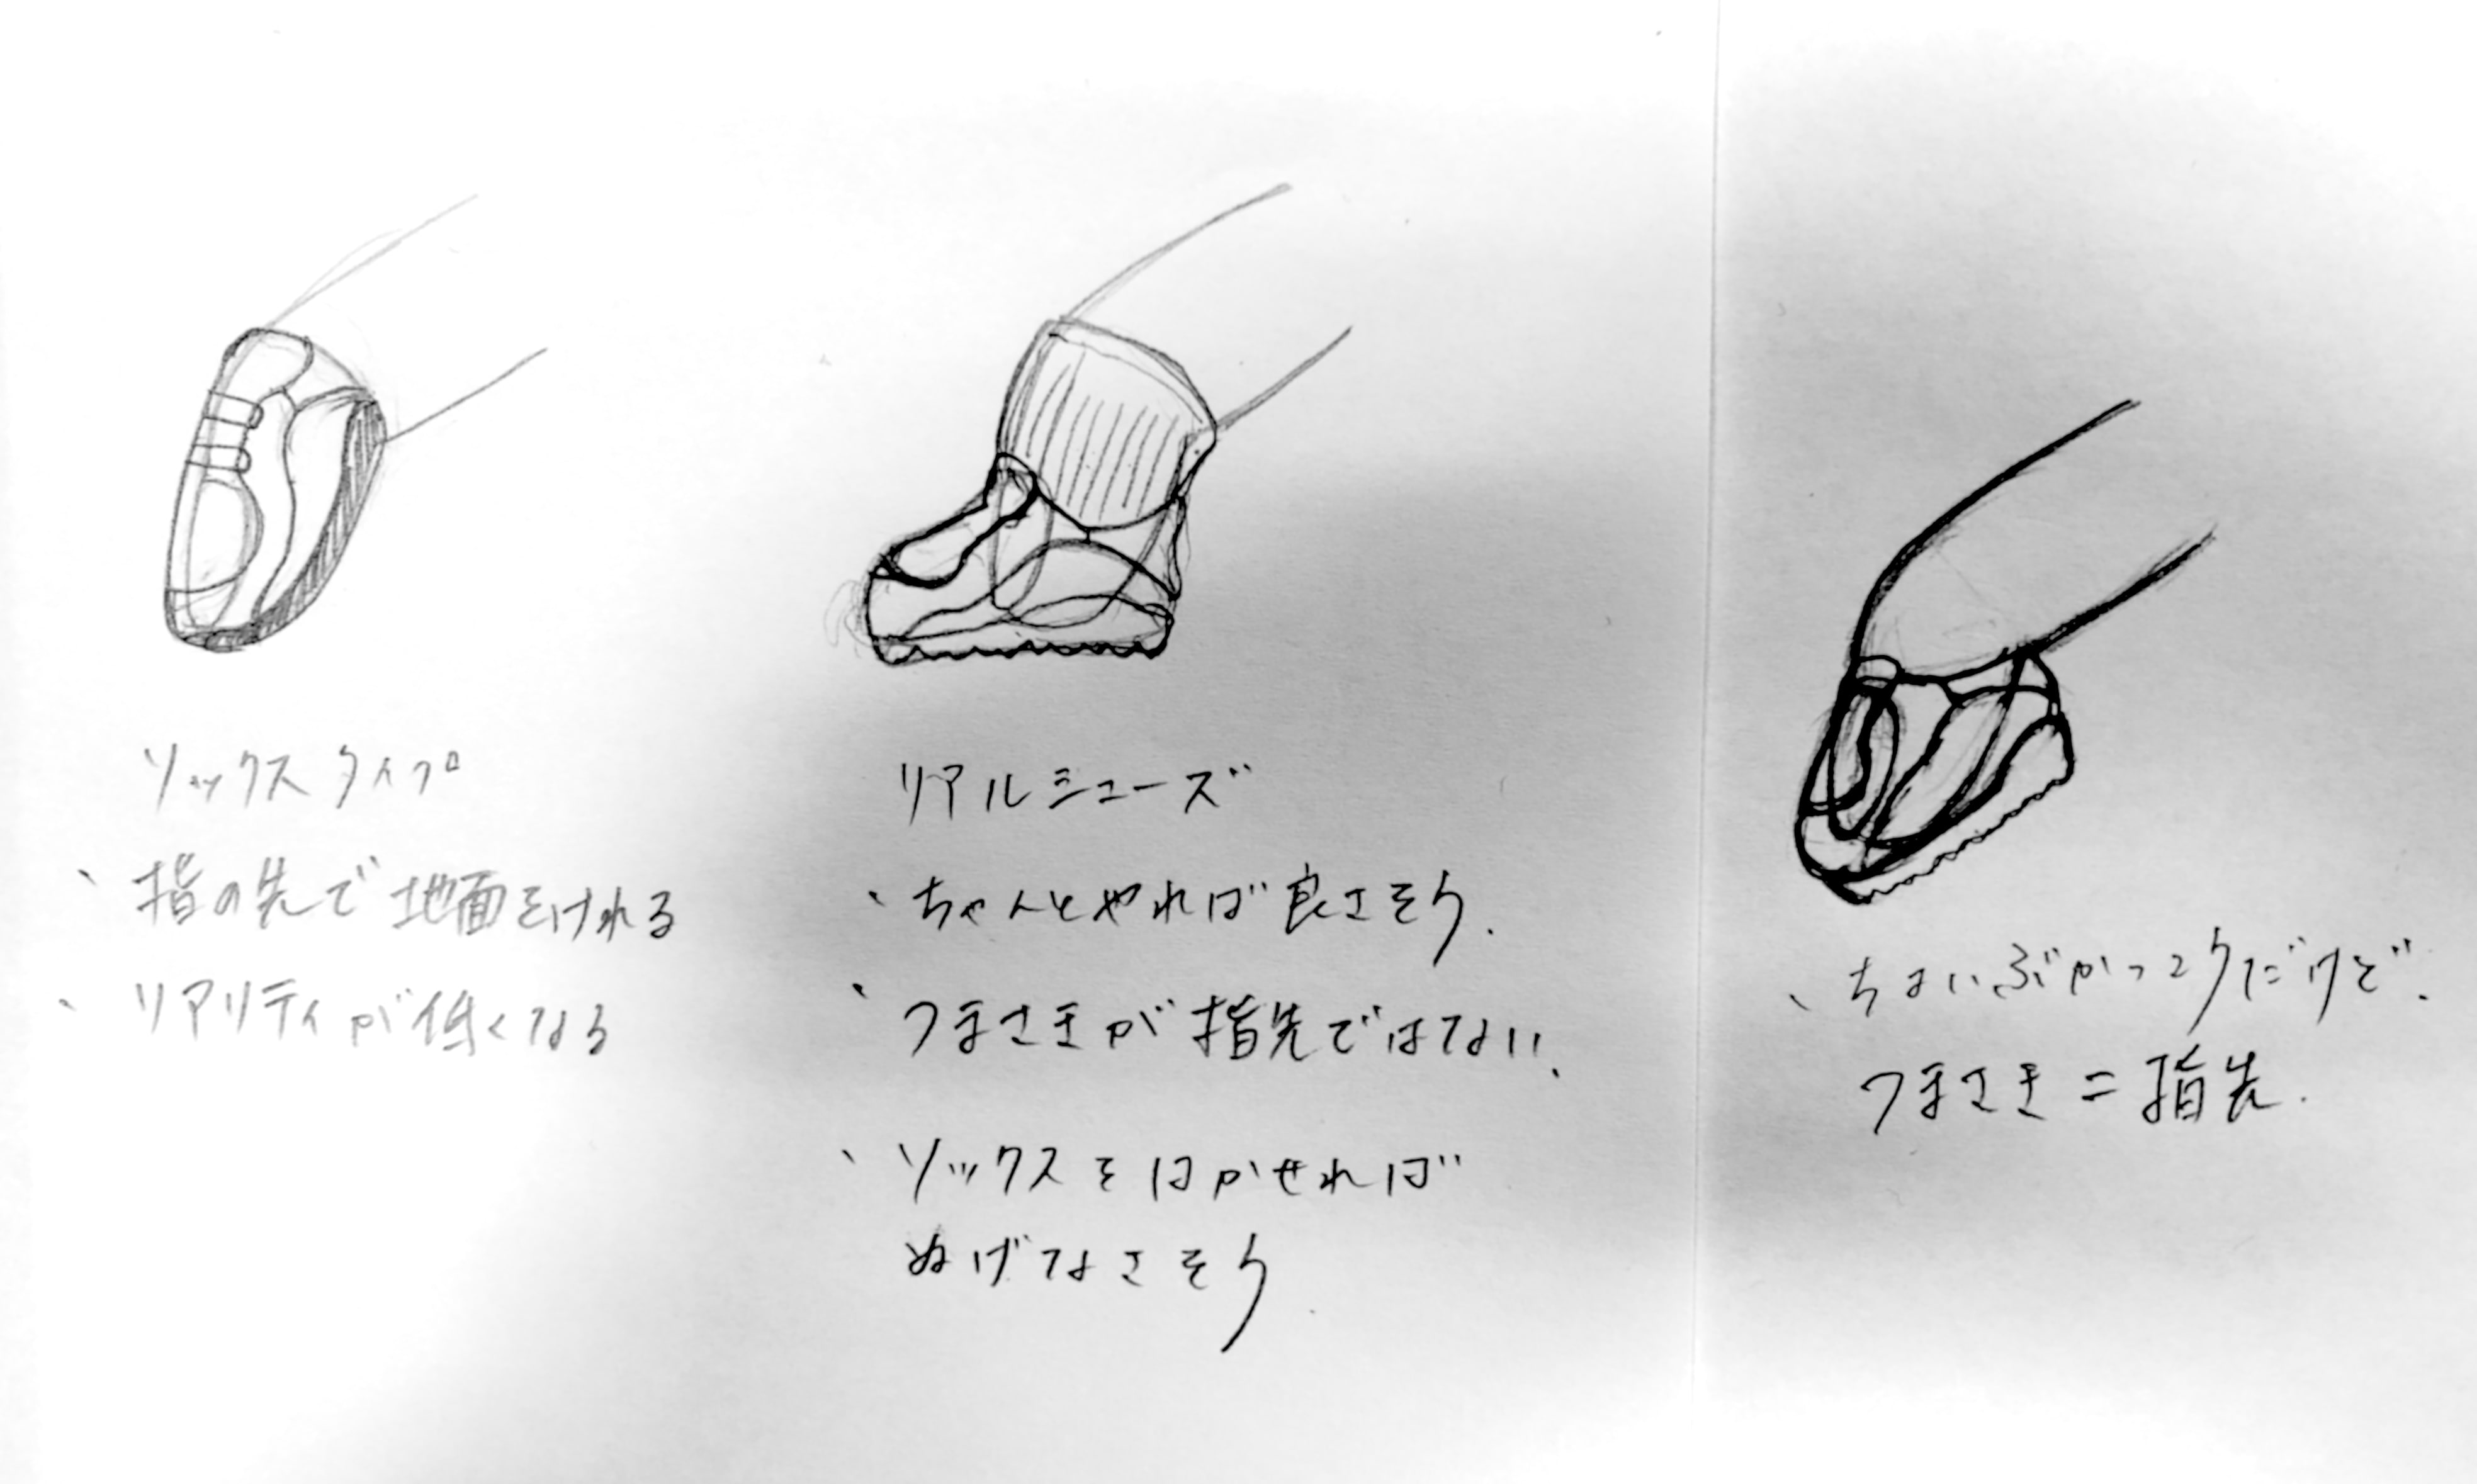 ソックスタイプ
、指の先で地面をけれる
、リアリティが低くなる
リアルシューズ
、ちゃんとやれば良さそう.
、つまさきが指先ではない、
、ソックスをはかせれば
ぬげなさそう
、ちょいぶかっこうだけど.
つまさき=指先.